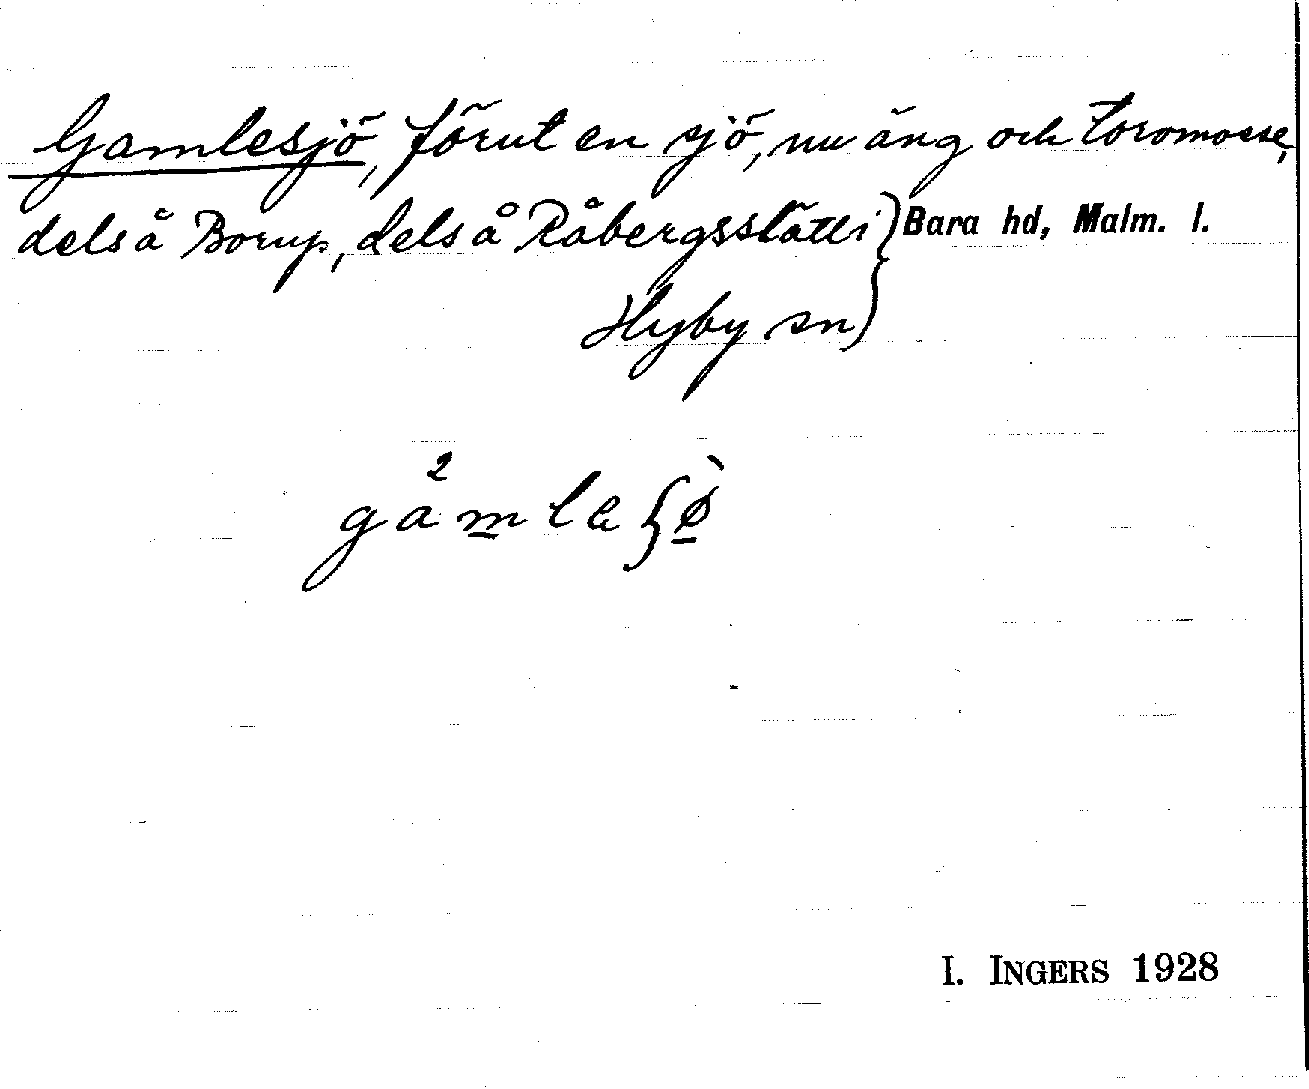 Gamlesjö, förut en sjö, nu äng och torvmosse,
dels å Borup, dels å Råbergsslätt i } Bara hd, Malm. l.
Hyby sn
gamle
I. INGERS 1928